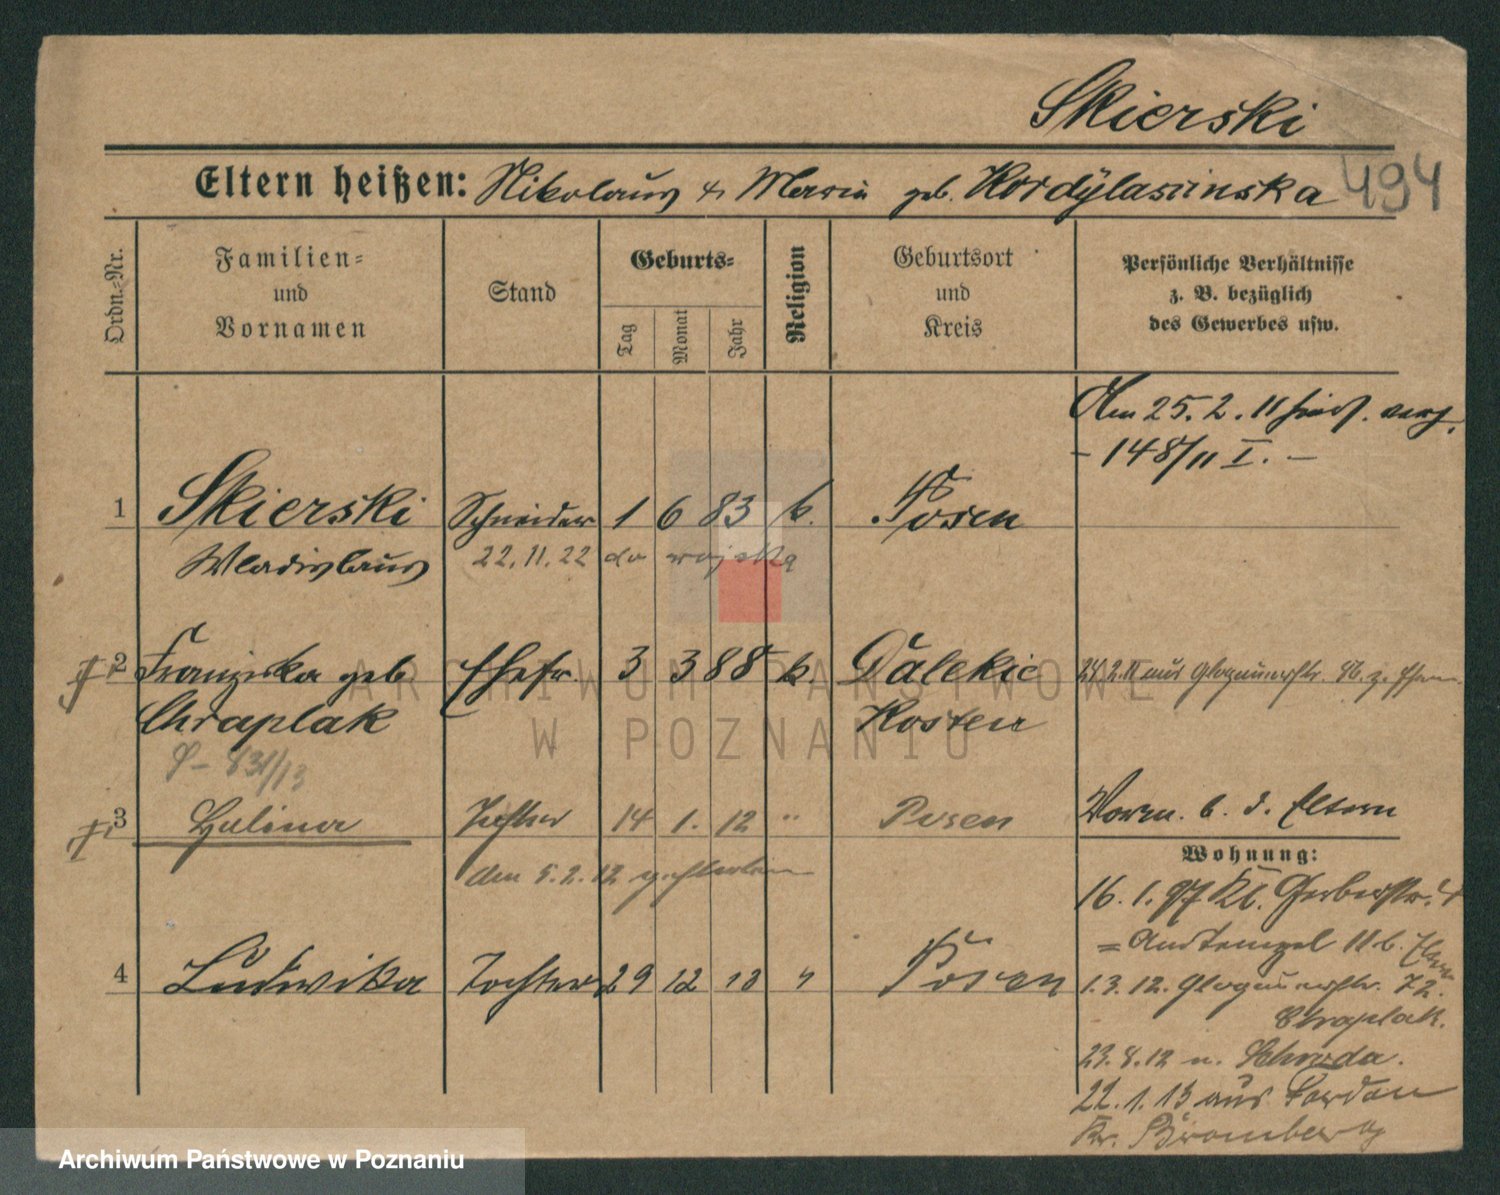 Skierski
494
Eltern heißen: Nikolaus & Maria geb. Kordÿlasinska
Ordn.-Nr.
Familien-
und
Vornamen
Stand
Geburts-
Tag
Monat
Jahr
Religion
Geburtsort
und
Kreis
Persönliche Verhältnisse
z. B. bezüglich
des Gewerbes usw.
Am 25. 2. 11
- 148/11 I. -
1 Skierski Schneider 1 6 83 k. Posen
Wladislaus 22.11.22 do wojska
2 Franziska geb Ehefr 3 3 88 k. Dalekie 24.2.11 aus Glogauerstr.
Chraplak Kosten
S- 831/13
3 Halina Tochter 14 1. 12 " Posen Vorm. b. d. Eltern
den 5.2.12 gestorben
Wohnung:
16. 1. 97 Kl. Gerberstr. 4
= Am Tempel 11 b.
4 Ludwika Tochter 29 12 13 " Posen 1.3.12. Glogauerstr. 72.
Chraplak.
23.8.12 n. Schroda.
22.1.13 aus Fordon
Kr. Bromberg
ARCHIWUM PAŃSTWOWE
W POZNANIU
Archiwum Państwowe w Poznaniu